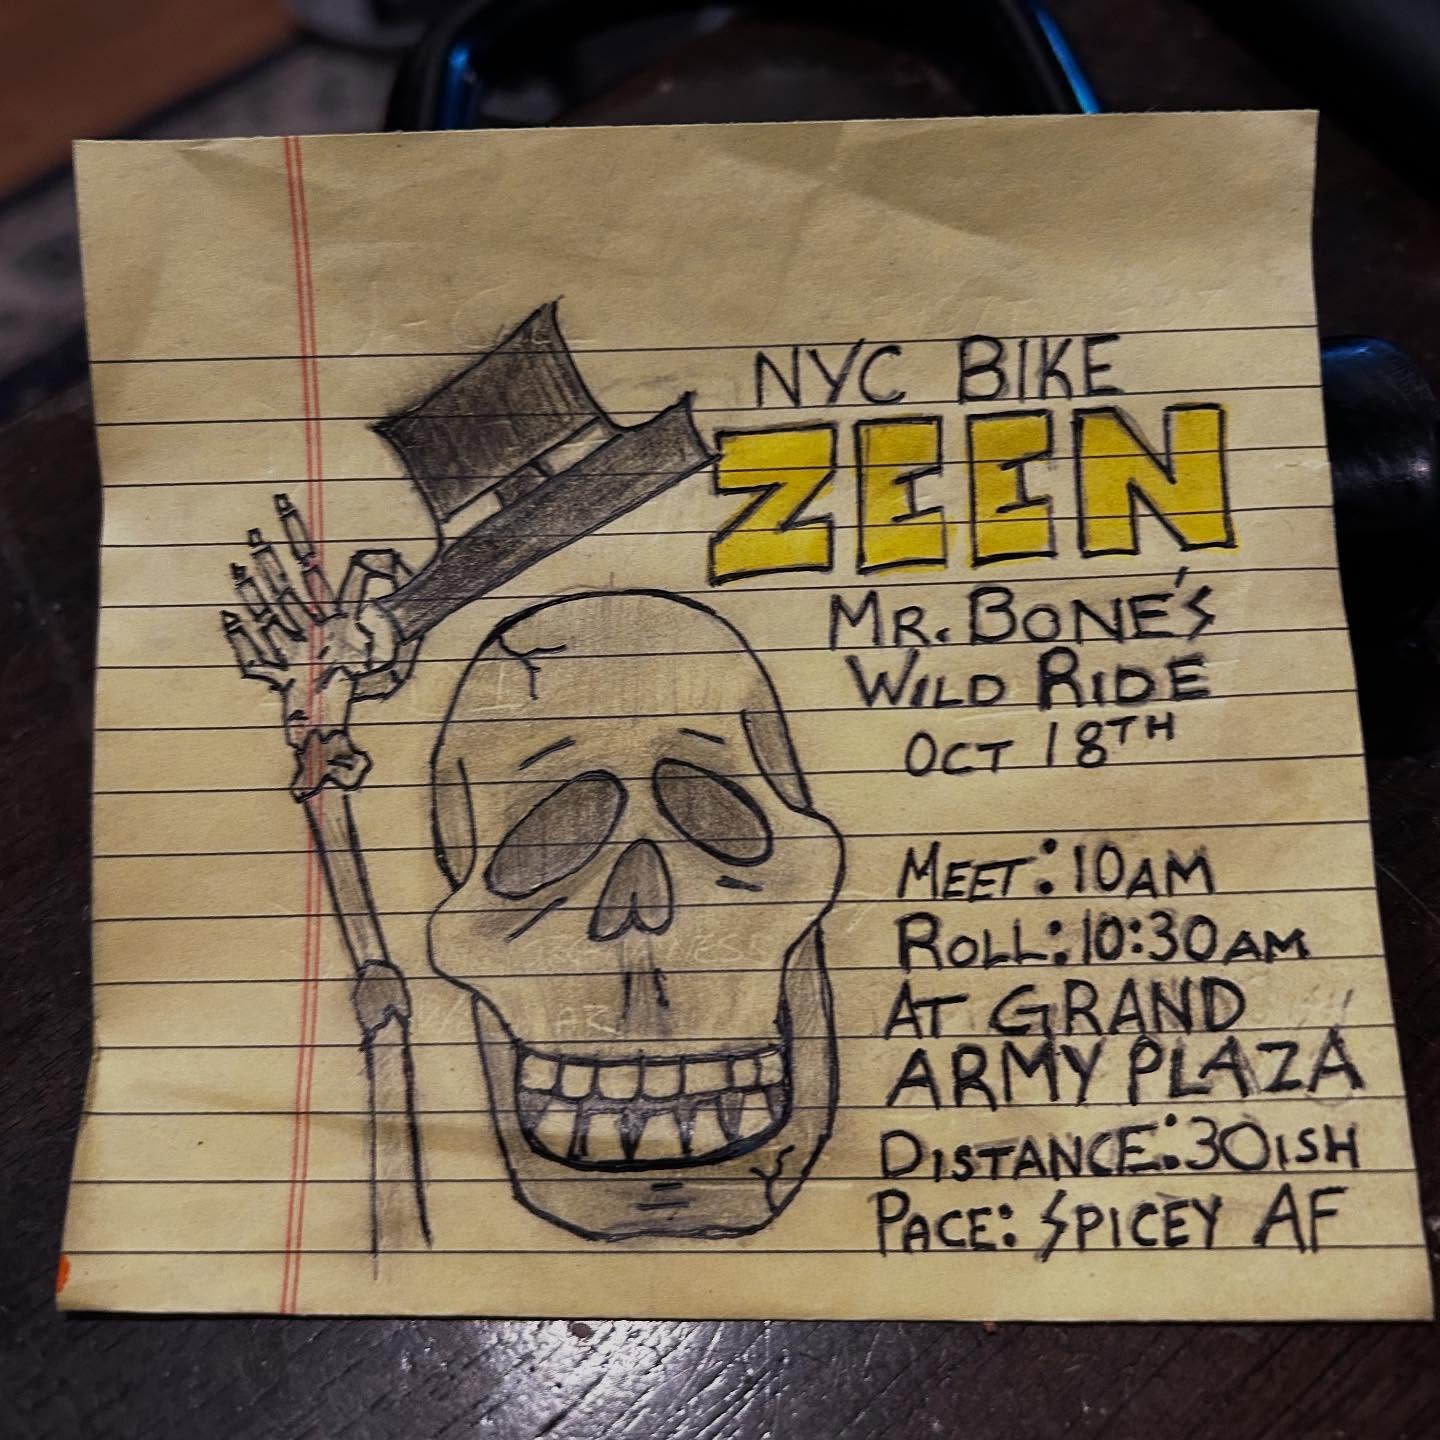 NYC BIKE
ZEEN
MR. BONE'S
WILD RIDE
OCT 18TH
MEET: 10AM
ROLL: 10:30AM
AT GRAND
ARMY PLAZA
DISTANCE: 30ISH
PACE: SPICEY AF